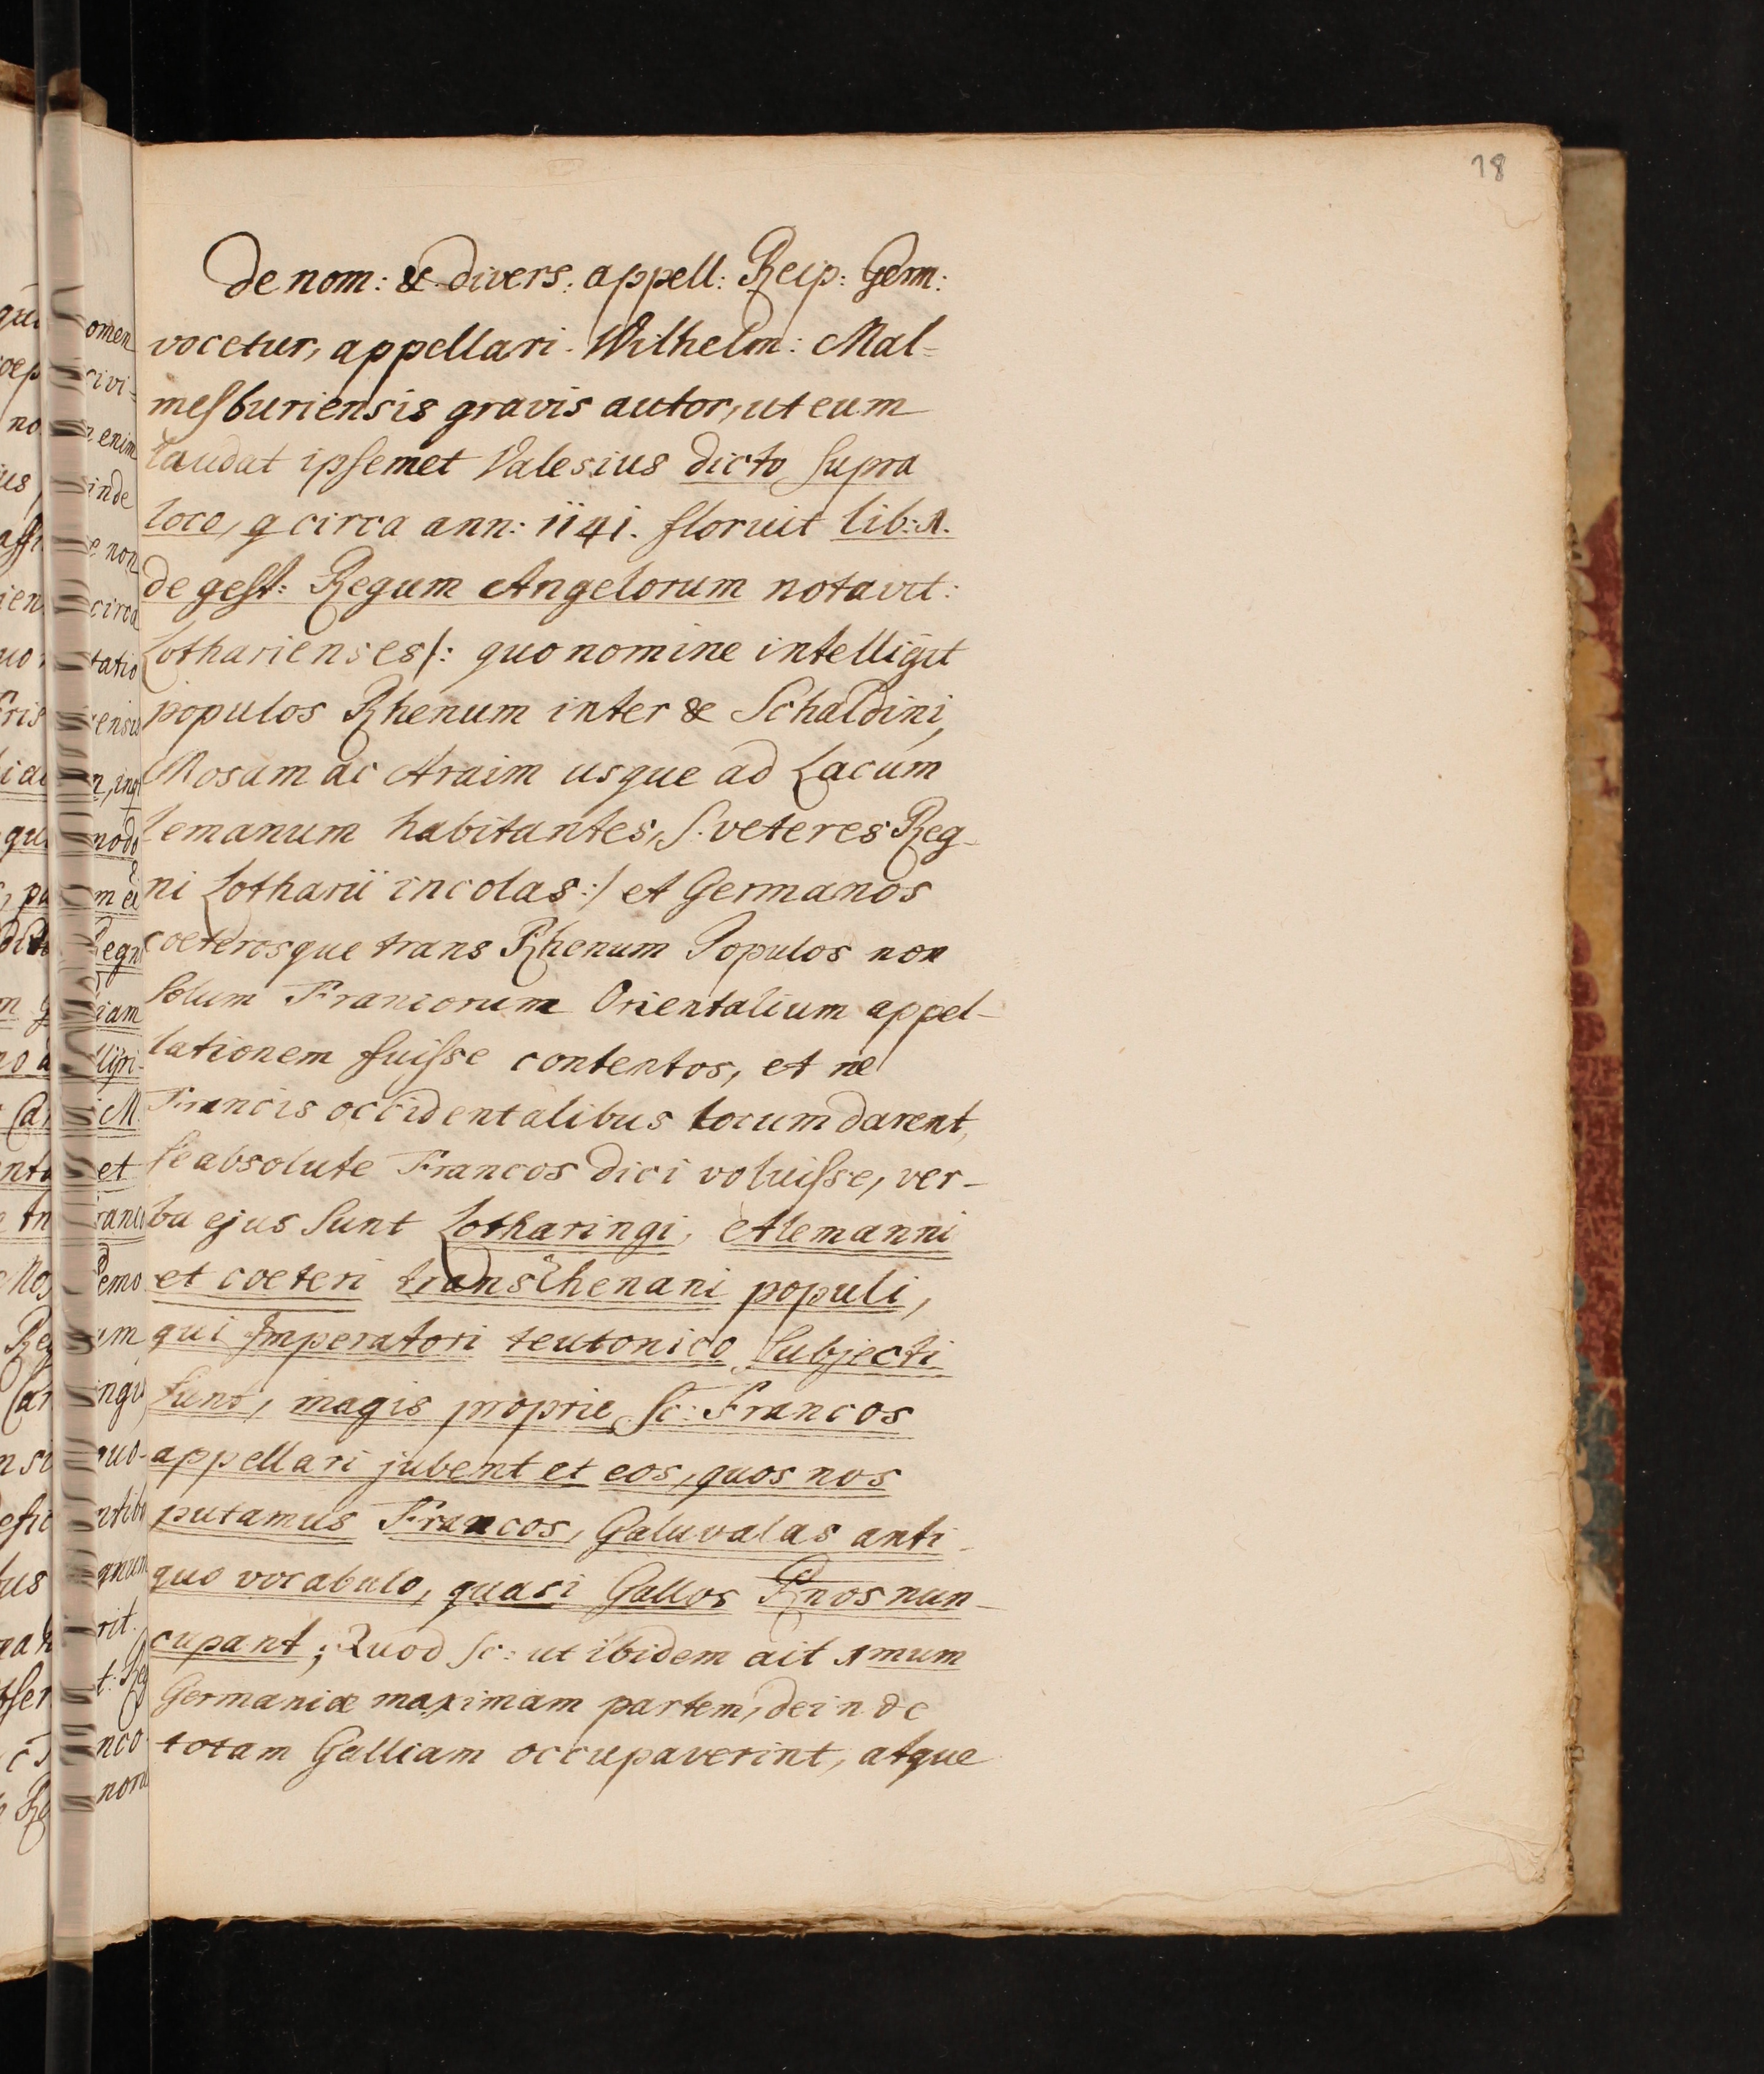 18
De nom: & divers: appell: Reip: Germ:
vocetur, appellari. Wilhelm: Mal=
mesburiensis gravis autor, ut eum
laudat ipsemet Valesius dicto supra
loco, q circa ann: 1141. floruit lib: 1.
de gest: Regum Angelorum notavit:
Lotharienses /: quo nomine intelligit
populos Rhenum inter & Schaldini,
Mosam ac Araim usque ad Lacum
lemanum habitantes, s. veteres Reg-
ni Lotharii incolas :/ et Germanos
coeterosque trans Rhenum Populos non
solum Franciorum Orientalium appel-
lationem fuisse contentos, et ne
Francis occidentalibus locum darent,
se absolute Francos dici voluisse, ver-
ba ejus sunt Lotharingi, Alemanni
et coeteri transrhenani populi,
qui Imperatori teutonico subjecti
sunt, magis proprie sc: Francos
appellari jubent et eos, quos nos
putamus Francos, Galuvalas anti-
quo vocabulo, quasi Gallos nun-
cupant; Quod sc: ut ibidem ait 1mum
Germaniæ maximam partem, deinde
totam Galliam occupaverint, atque